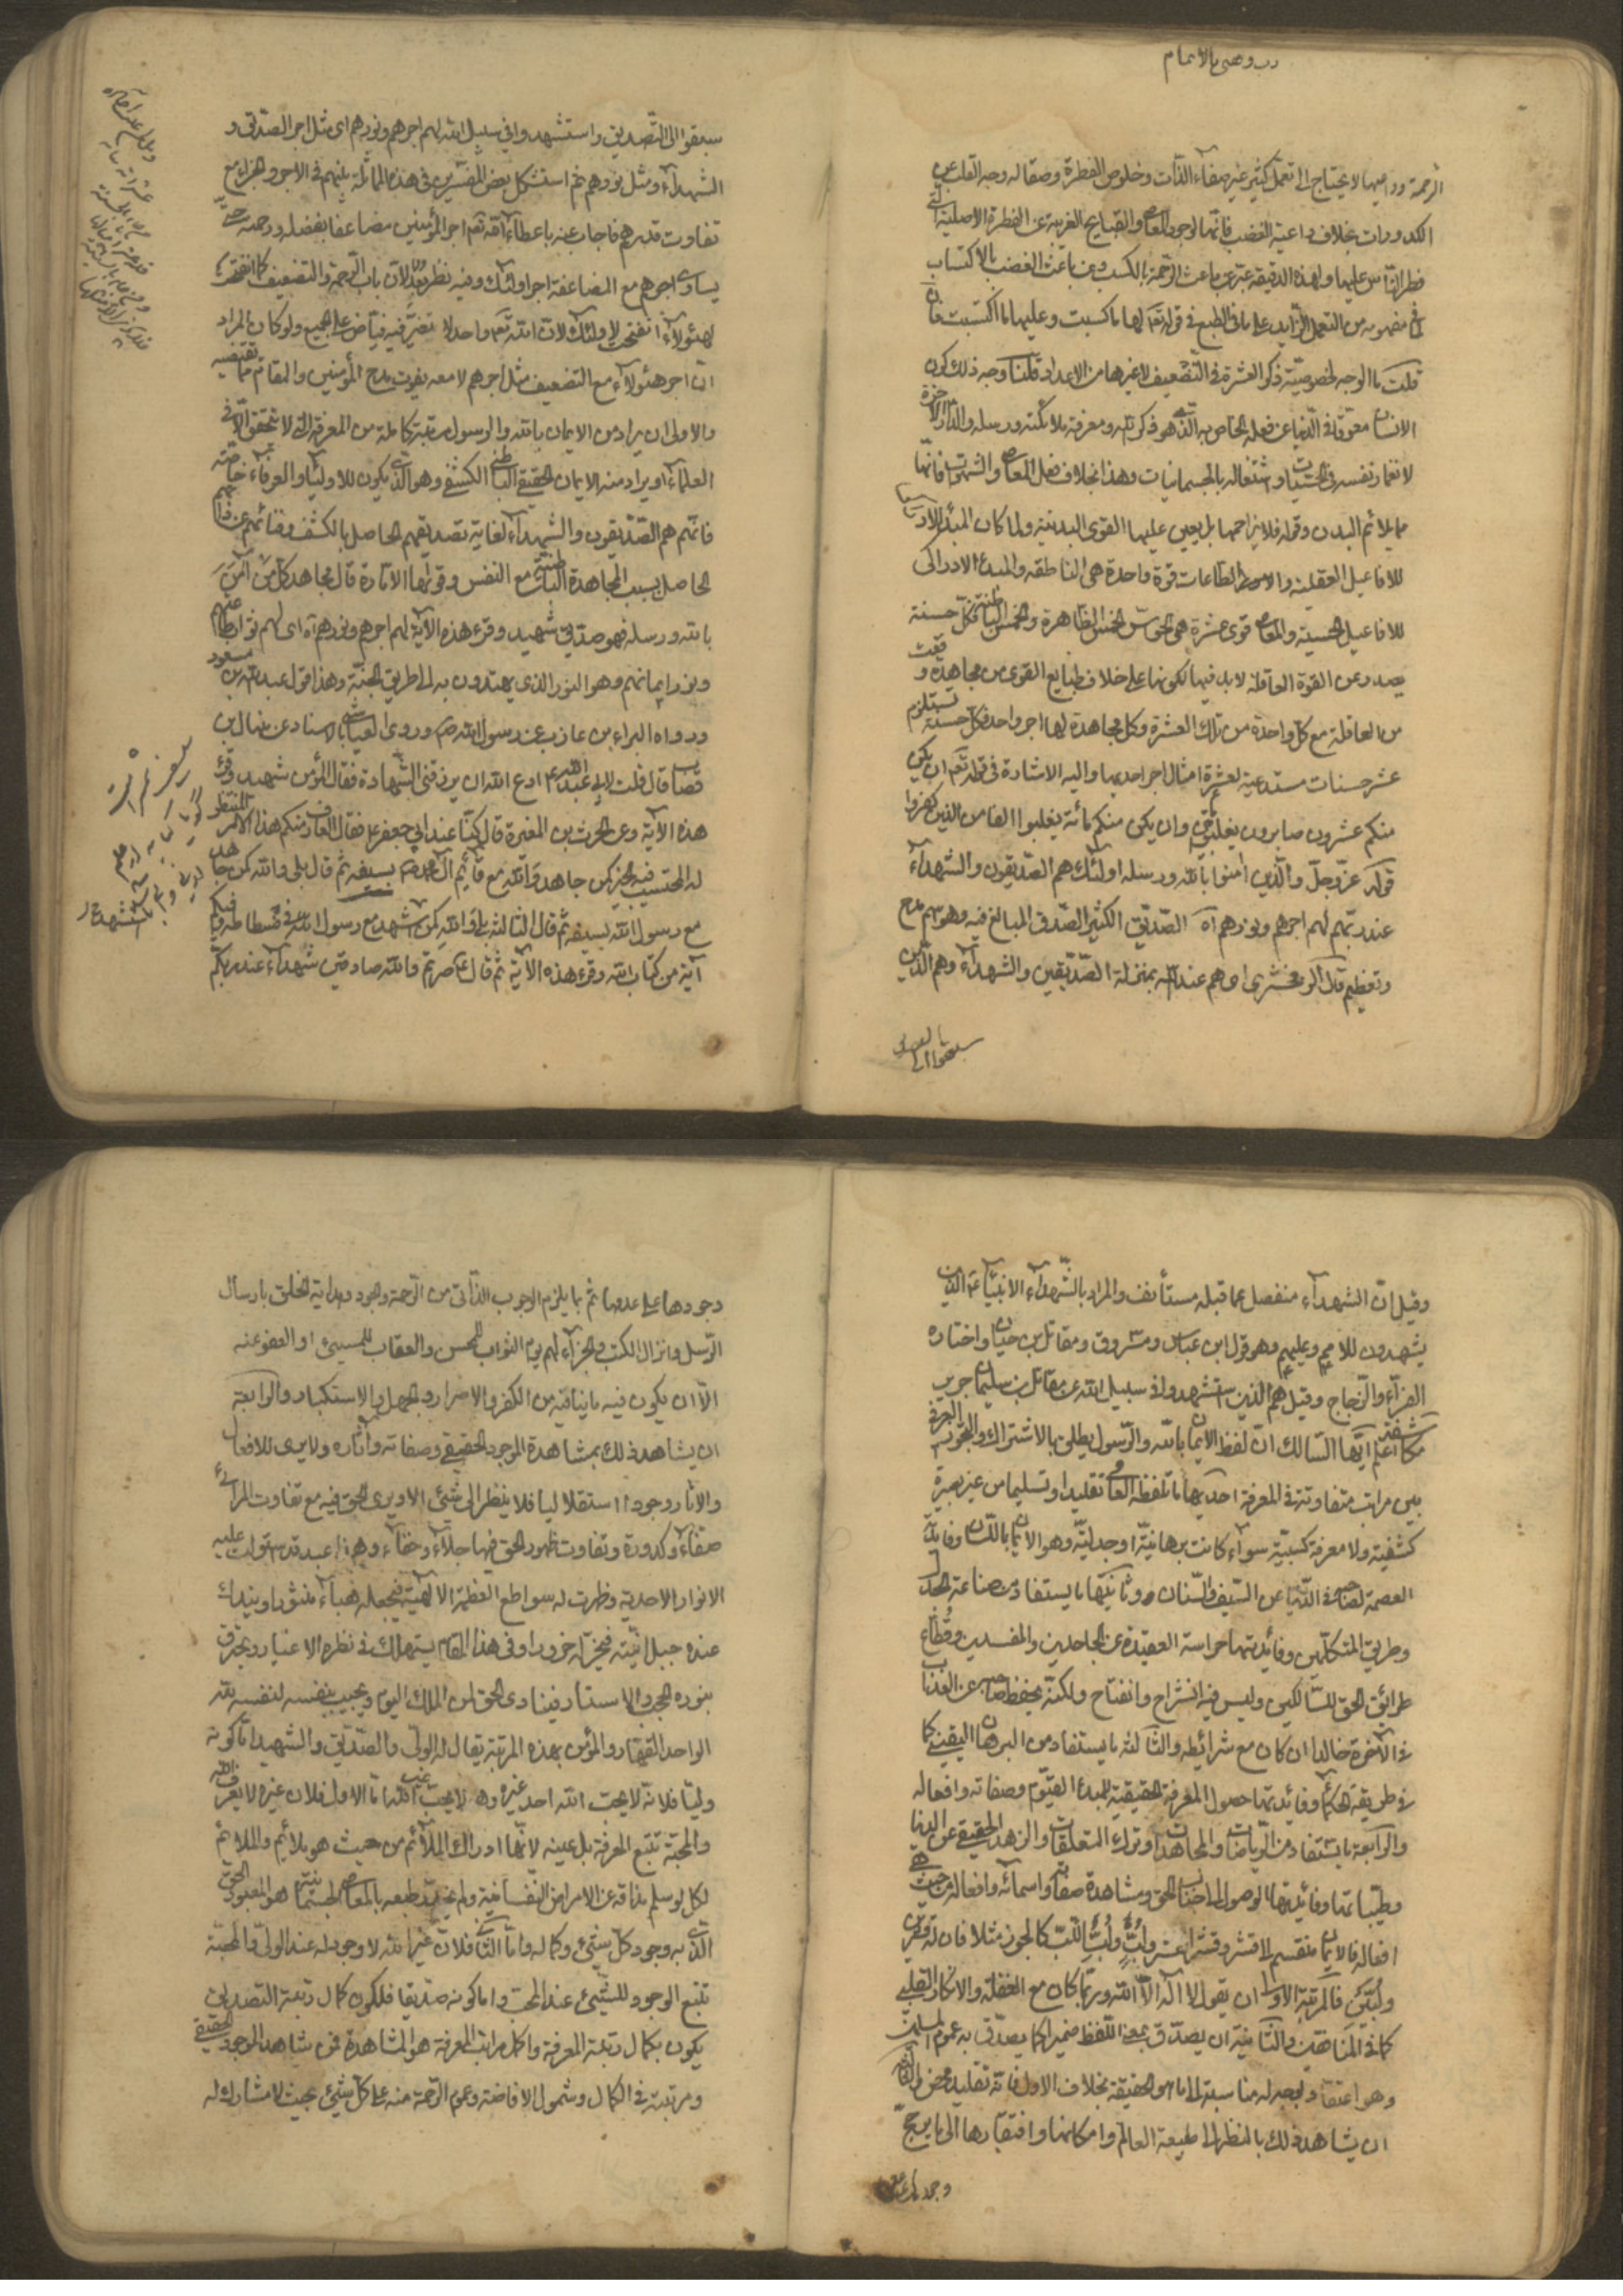 رب وفقني بالاتمام
الرحمة ودواعيها لا يحتاج الى تعمل كثير غير صفاء الذات وخلوص الفطرة وصقاله وجه القلب عن
الكدورات بخلاف داعية الغضب فانها لوجود المعاصي والقبايح الغريبة عن الفطرة الاصلية التي
فطر الناس عليها ولهذه الدقيقة عبر عن باعث الرحمة بالكسب وعن باعث الغضب بالاكتساب
في مفهومه من التعمل الزايد على ما في الطبع في قوله تعم لها ما كسبت وعليها ما اكتسبت فان
قلت ما الوجه لخصوصية ذكر العشرة في التضعيف لا غيرها من الاعداد قلنا وجه ذلك كون
الانسان معوقا في الدنيا عن فعله الخاص به الذي هو ذكر الله ومعرفة ملائكته ورسله والدار الاخرة
لانغمار نفسه في الحسيات واشتغاله بالجسمانيات وهذا بخلاف فعل المعاصي والشهوات فانها
مما يلائم البدن وقواه فلا يزاحمها بل يعين عليها القوى البدنية ولما كان المبدأ الادراكي
للافاعيل العقلية والطاعات قوة واحدة هي الناطقة والمبدء الادراكي
للافاعيل الحسية والمعاصي قوى عشرة هي الحواس الخمس الظاهرة والخمس الباطنة فكل حسنة
يصدر عن القوة العاقلة لابد فيها لكونها على خلاف طبايع القوى من مجاهدة وقعت
من العاقلة مع كل واحدة من تلك العشرة وكل مجاهدة لها اجر واحد فكل حسنة تستلزم
عشر حسنات مستدعية لعشرة امثال اجر احديها واليه الاشارة في قوله تعم ان يكن
منكم عشرون صابرون يغلبوا مأتين وان يكن منكم مائة يغلبوا الفا من الذين كفروا
قوله عز وجل والذين امنوا بالله ورسله اولئك هم الصديقون والشهداء
عند ربهم لهم اجرهم ونورهم آه الصديق الكثير الصدق المبالغ فيه وهو اسم مدح
وتعظيم قال الزمخشري اي هم عند الله بمنزلة الصديقين والشهداء وهم الذين
سبقوا الى
سبقوا الى التصديق واستشهدوا في سبيل الله لهم اجرهم ونورهم اي مثل اجر الصديقين و
الشهداء ومثل نورهم ثم استشكل بعض المفسرين في هذه المماثلة بينهم في الاجر والجزاء مع
تفاوت قدرهم فاجاب عنه باعطاء الله تعم اجر المؤمنين مضاعفا بفضله ورحمته حتى
يساوي اجرهم مع المضاعفة اجر اولئك وفيه نظر بعد لان باب الرحمة والتضعيف كما انفتحت
لهؤلاء انفتحت لاولئك لان الله تعم واحد لا تغير فيه فياض على الجميع ولو كان المراد
ان اجر هؤلاء مع التضعيف مثل اجرهم لا معه يفوت مدح المؤمنين والمقام مما يقتضيه
والاولى ان يراد من الايمان بالله والرسول مرتبة كاملة من المعرفة التي لا تتحقق الا في
العلماء او يراد منه الايمان الحقيقي الباطني الكشفي وهو الذي يكون للاولياء والعرفاء خاصة
فانهم هم الصديقون والشهداء لغاية تصديقهم الحاصل بالكشف وفنائهم عن ذاتهم
الحاصل بسبب المجاهدة الباطنية مع النفس وقواها الامارة قال مجاهد كل من آمن
بالله ورسله فهو صديق شهيد وقرء هذه الآية لهم اجرهم ونورهم آه اي لهم ثواب طاعاتهم
ونور ايمانهم وهو النور الذي يهتدون به الى طريق الجنة وهذا قول عبد الله بن مسعود
ورواه البراء بن عازب عن رسول الله ص وروى العياشي بالاسناد عن منهال بن
قصاب قال قلت لابي عبد الله ع ادع الله ان يرزقني الشهادة فقال المؤمن شهيد وقرء
هذه الآية وعن الحرث بن المغيرة قال كنا عند ابي جعفر ع فقال العارف منكم هذا الامر المنتظر
له المحتسب فيه الخير كمن جاهد والله مع قائم آل محمد ص بسيفه ثم قال بلى والله كمن جاهد
مع رسول الله بسيفه ثم قال الثالثة بلى والله كمن استشهد مع رسول الله ص في فسطاطه وفيكم
آية من كتاب الله وقرء هذه الآية ثم قال ع صرتم والله صادقين شهداء عند ربكم
وقيل ان الشهداء منفصل عما قبله مستأنف والمراد بالشهداء الانبياء ع الذين
يشهدون للامم وعليهم وهو قول ابن عباس ومسروق ومقاتل بن حيان واختاره
الفراء والزجاج وقيل هم الذين استشهدوا في سبيل الله عن مقاتل بن سليمان وجرير
مكاشفة اعلم ايها السالك ان لفظ الايمان بالله والرسول يطلق بالاشتراك والتجوز العرفي
بين مراتب متفاوتة في المعرفة احديها ما تلفظه العامي تقليدا وتسليما من غير بصيرة
كشفية ولا معرفة كسبية سواء كانت برهانية او جدلية وهو الايمان باللسان وفايدته
العصمة لصاحبه في الدنيا عن السيف والسنان وثانيتها ما يستفاد من صناعة الجدل
وطريق المتكلمين وفائدتها حراسة العقيدة عن الجاحدين والمفسدين وقطاع
طرائق الحق للسالكين وليس فيه انشراح وانفتاح ولكنه يحفظ صاحبه عن العذاب
في الآخرة خالدا ان كان مع شرائطه والثالثة ما يستفاد من البرهان اليقيني كما
في طريقة الحكماء وفائدتها حصول المعرفة الحقيقية للمبدء القيوم وصفاته وافعاله
والرابعة ما يستفاد من الرياضات والمجاهدات وترك المتعلقات والزهد الحقيقي عن الدنيا
وطيباتها وفائدتها الوصول الى جناب الحق ومشاهدة صفاته واسمائه وافعاله من حيث هي
افعاله فالايمان منقسم الى قشر وقشر القشر ولب ولب اللب كالجوز مثلا فان له قشرين
ولبين فالمرتبة الاولى ان يقول لا اله الا الله وربما كان مع الغفلة والانكار القلبي
كما في المنافقين والثانية ان يصدق بمعنى اللفظ ضميرا كما يصدق به عموم المسلمين
وهو اعتقاد يوجد له مناسبة الى ما هو الحقيقة بخلاف الاول فانه تقليد محض والثالثة
ان يشاهد ذلك بالنظر الى طبيعة العالم وامكانها وافتقارها الى ما يرجح
وجودها على عدمها
وجودها على عدمها ثم بما يلزم الوجوب الذاتي من الرحمة والجود وهداية الخلق بارسال
الرسل وانزال الكتب والجزاء لهم يوم الثواب للمحسن والعقاب للمسيئ او العفو عنه
الا ان يكون فيه ما ينافيه من الكفر والاصرار والجهل والاستكبار والرابعة
ان يشاهد ذلك بمشاهدة الموجود الحقيقي وصفاته وآثاره ولا يرى للافعال
والاثار وجودا استقلاليا فلا ينظر الى شئ الا ويرى الحق فيه مع تفاوت المرائي
صفاء وكدورة وتفاوت ظهور الحق فيها جلاء وخفاء وهذا عبد قد استولت عليه
الانوار الاحدية وظهرت له سواطع العظمة الالهية فيجعله هباء منثورا ويندك
عنده جبل انيته فيخر له خرورا وفي هذا المقام يستهلك في نظره الاغيار ويحترق
بنوره الحجب والاستار فينادي الحق لمن الملك اليوم ويجيب بنفسه لنفسه لله
الواحد القهار والمؤمن بهذه المرتبة يقال له الولي والصديق والشهيد اما كونه
وليا فلانه لا يحب الله احد غيره وهو لا يحب غير الله اما الاول فلان غيره لا يعرف الله
والمحبة تتبع المعرفة بل عينه لانها ادراك الملائم من حيث هو ملائم والملائم
لكل لو سلم مذاقه عن الامراض النفسانية ولم يتغير طبعه بالمعاصي الجسمانية هو المعبود الحق
الذي به وجود كل شئ وكماله واما الثاني فلان غير الله لا وجود له عند الولي والمحبة
تتبع الوجود للشئ عند المحب واما كونه صديقا فلكون كمال رتبة التصديق
يكون بكمال رتبة المعرفة واكمل مراتب المعرفة هو المشاهدة فمن شاهد الوجود الحقيقي
ومرتبته في الكمال وشمول الافاضة وعموم الرحمة منه على كل شئ بحيث لا مشارك له